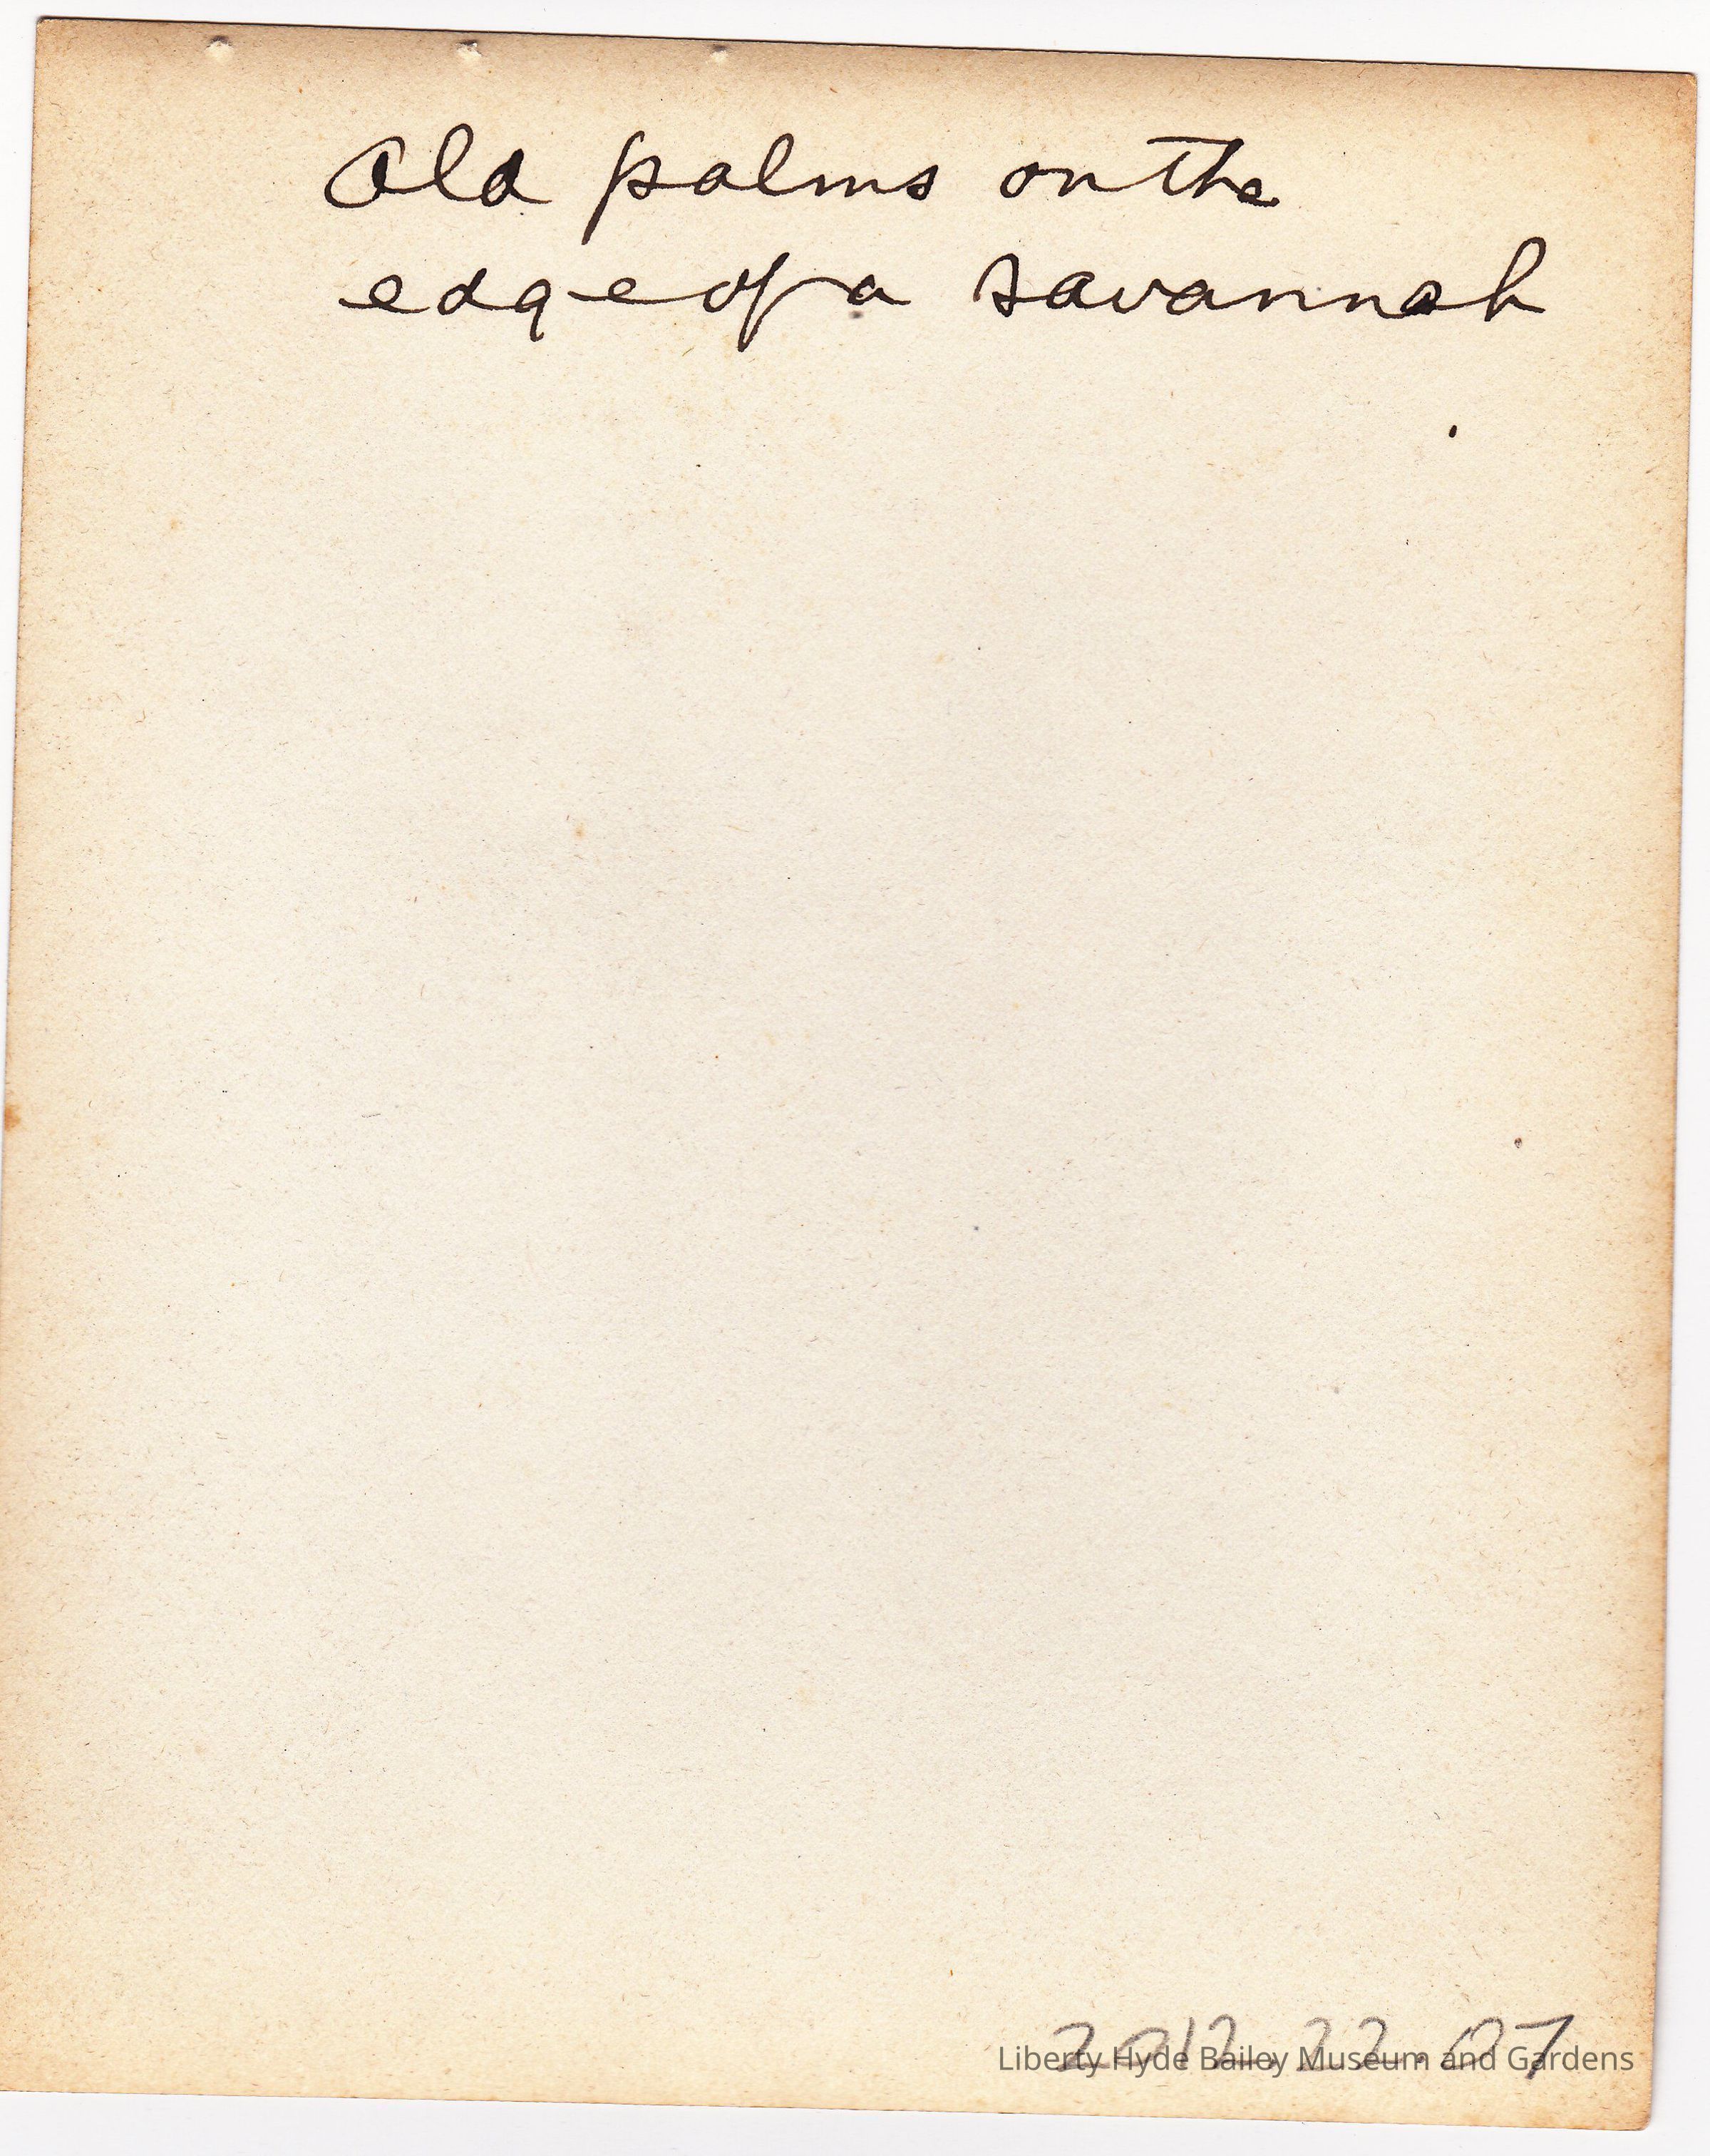 Old palms on the
edge of a savannah
2012.22.07
Liberty Hyde Bailey Museum and Gardens